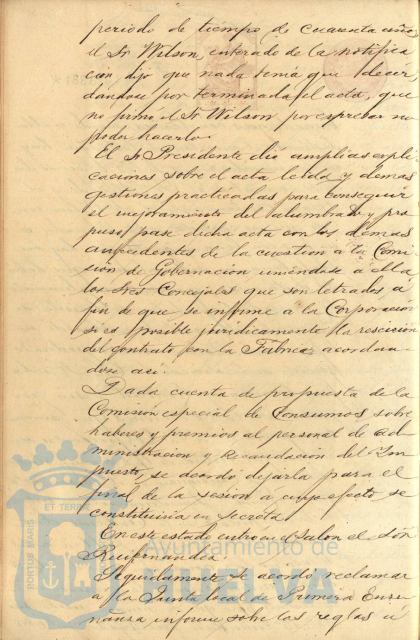 periodo de tiempo de cuarenta años
el Sr Wilson, enterado de la notifica
ción dijo que nada tenía que decir
dándose por terminada el acta, que
no firmó el Sr Wilson por expresar no
poder hacerlo.
El Sr Presidente dió amplias expli
caciones sobre el acta leída y demas
gestiones practicadas para conseguir
el mejoramiento del alumbrado y pro
puso pase dicha acta con los demas
antecedentes de la cuestion a la Comi
sión de Gobernacion uniendose a ella
los Sres Concejales que son letrados, a
fin de que se informe a la Corporacion
si es posible juridicamente la rescision
del contrato con la Fabrica, acordan
dose asi.
Dada cuenta de propuesta de la
Comisión especial de Consumos sobre
haberes y premios al personal de Ad
ministracion y Recaudación del Im
puesto, se acordó dejarla para el
final de la sesión a cuyo efecto se
constituiria en secreta
En este estado entro en el Salon el Sor
Seguidamente se acordó reclamar
a la Junta local de Primera Ense
ñanza informe sobre las reglas a
ET TERRA
PORTUS MARIS
Ayuntamiento de
HUELVA